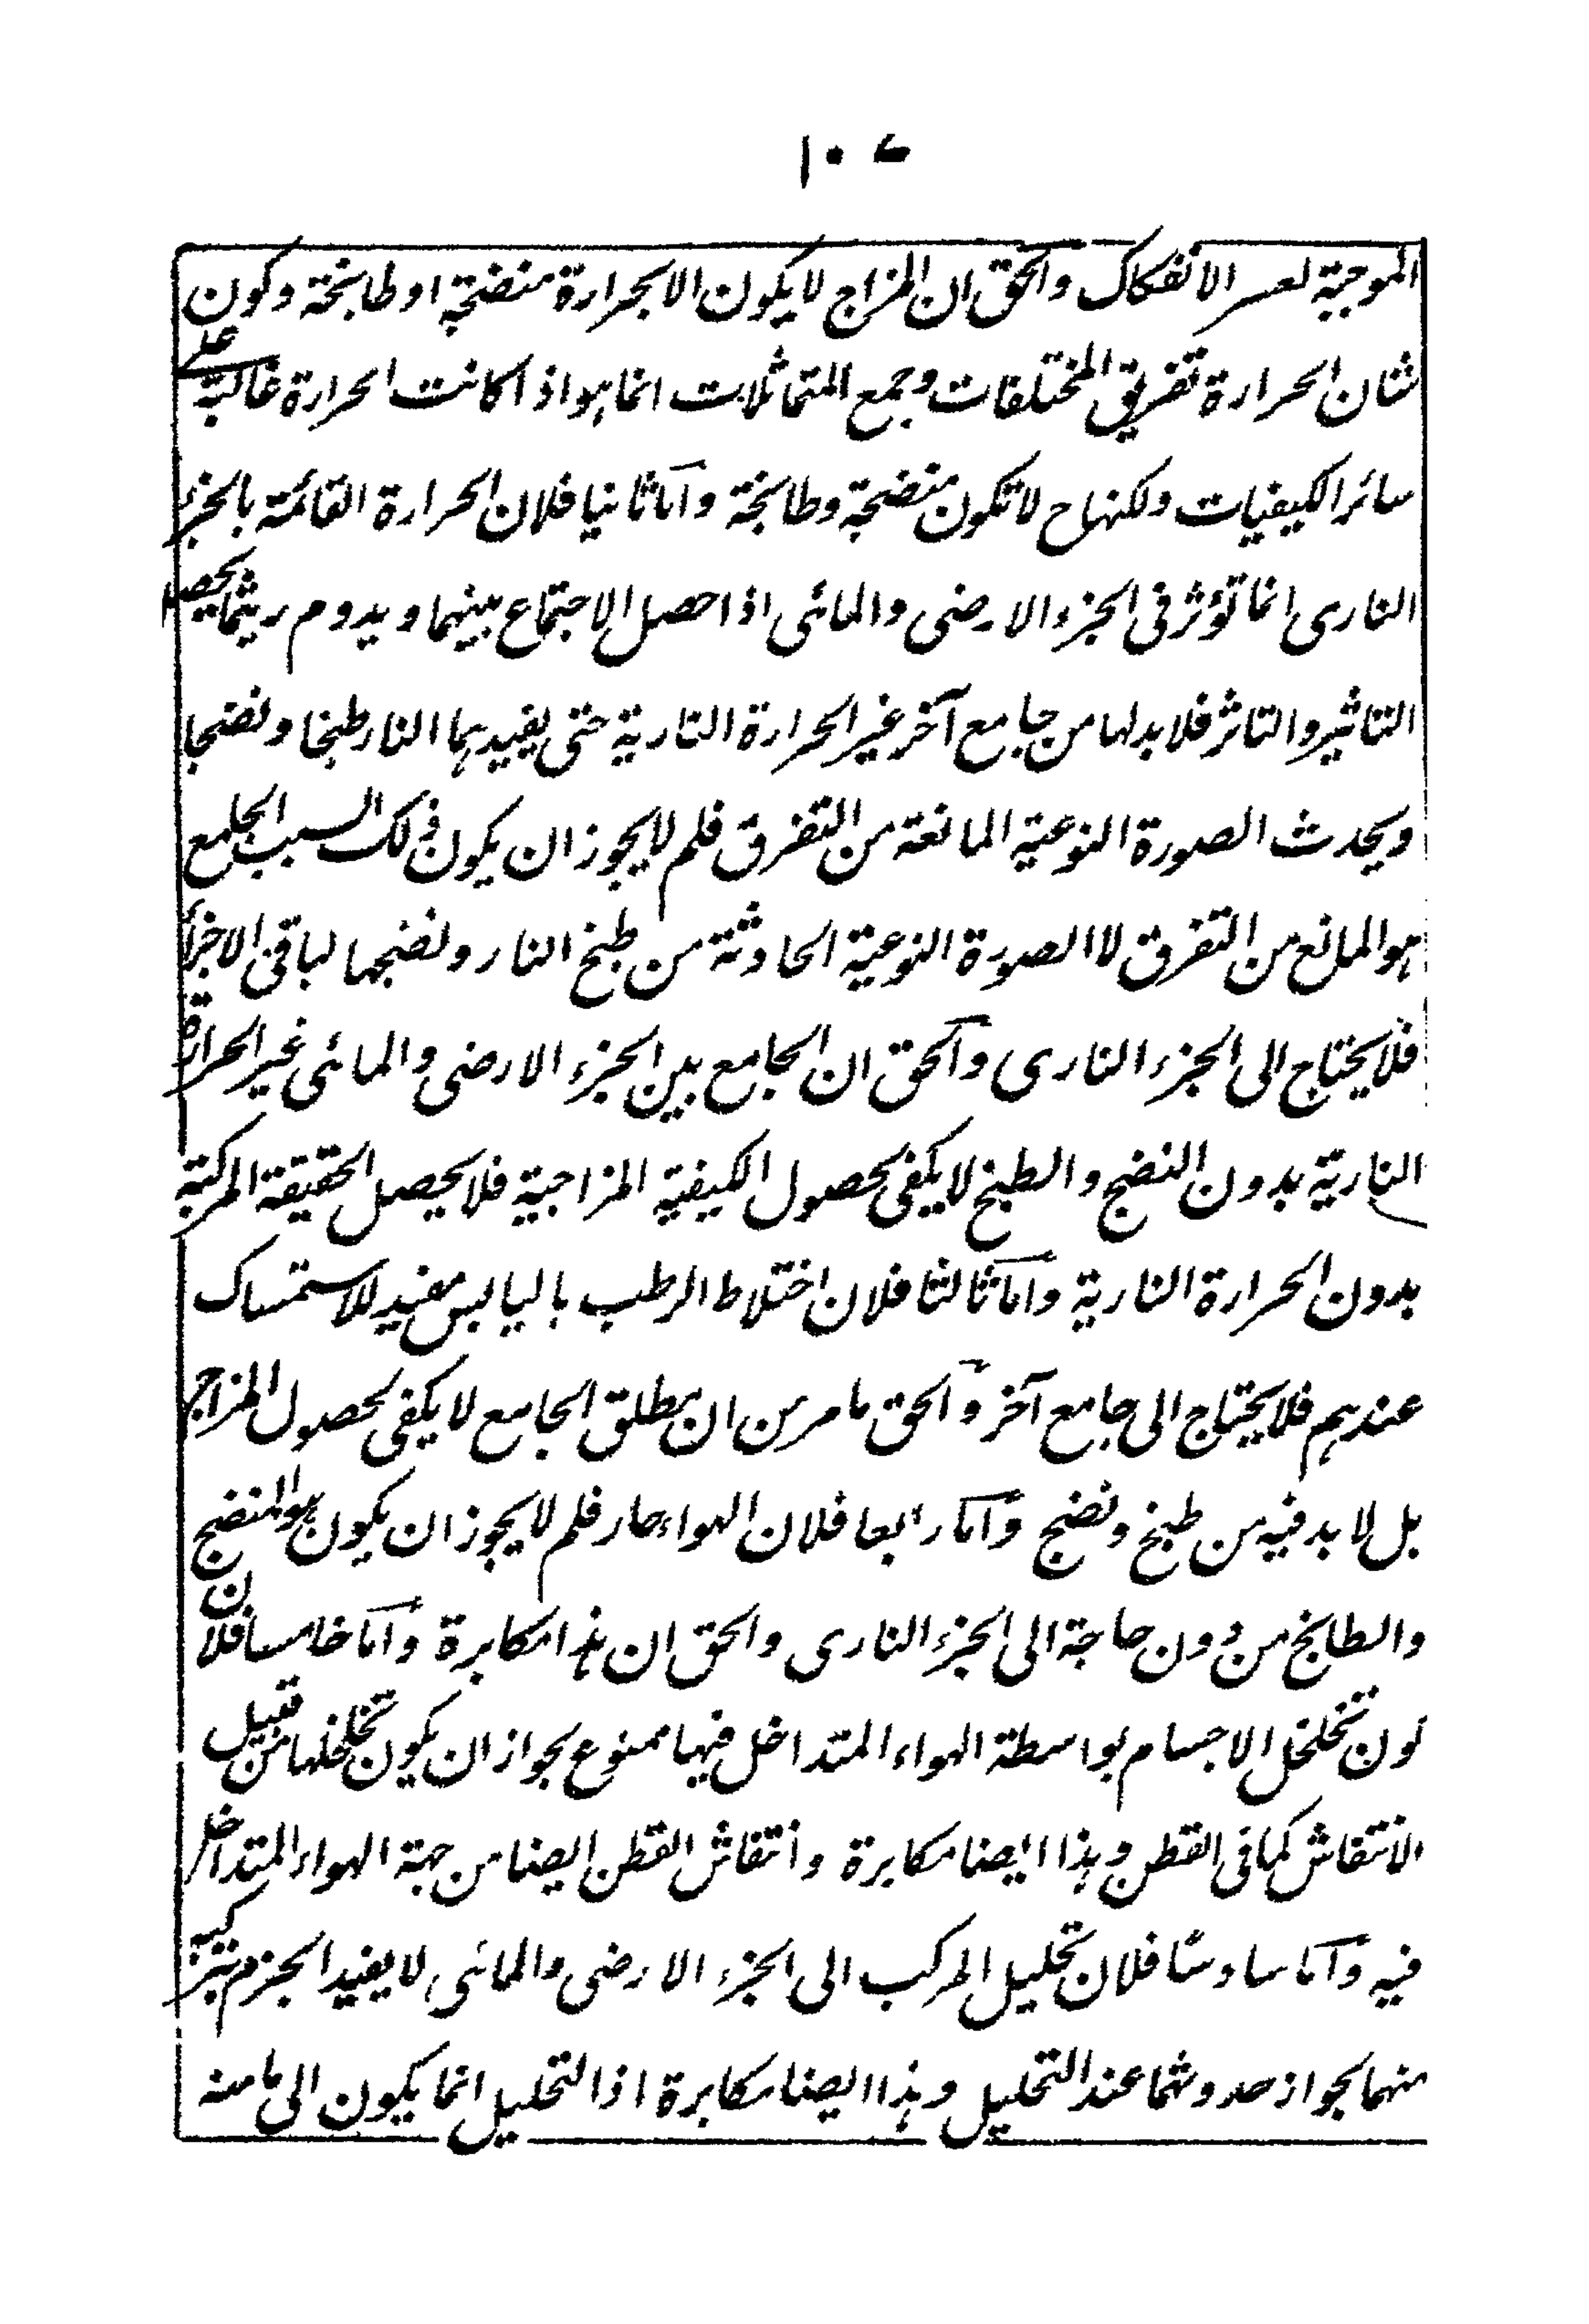 ١٠٤
الموجبة لعسر الانفكاك والحق ان المزاج لا يكون الا بحرارة منضجة او طابخة وكون
شان الحرارة تفريق المختلفات وجمع المتماثلات انما هو اذا كانت الحرارة غالبة على
سائر الكيفيات ولكنها ح لا تكون منضجة وطابخة واما ثانيا فلان الحرارة القائمة بالجزء
النارى انما تؤثر فى الجزء الارضى والمائى اذا حصل الاجتماع بينهما ويدوم ريثما يحصل
التاثير والتاثر فلا بد لها من جامع آخر غير الحرارة النارية حتى يفيدهما النار طبخا ونضجا
ويحدث الصورة النوعية المانعة من التفرق فلم لا يجوز ان يكون ذلك السبب الجامع
هو المانع من التفرق لا الصورة النوعية الحادثة من طبخ النار ونضجها لباقى الاجزاء
فلا يحتاج الى الجزء النارى والحق ان الجامع بين الجزء الارضى والمائى غير الحرارة
النارية بدون النضج والطبخ لا يكفى لحصول الكيفية المزاجية فلا يحصل الحقيقة المركبة
بدون الحرارة النارية واما ثالثا فلان اختلاط الرطب باليابس مفيد للاستمساك
عندهم فلا يحتاج الى جامع آخر والحق ما مر من ان مطلق الجامع لا يكفى لحصول المزاج
بل لا بد فيه من طبخ ونضج واما رابعا فلان الهواء حار فلم لا يجوز ان يكون هو المنضج
والطابخ من دون حاجة الى الجزء النارى والحق ان هذا مكابرة واما خامسا فلان
كون تخلخل الاجسام بواسطة الهواء المتداخل فيها ممنوع بجواز ان يكون تخلخلها من قبيل
الانتفاش كما فى القطن وهذا ايضا مكابرة وانتفاش القطن ايضا من جهة الهواء المتداخل
فيه واما سادسا فلان تحليل المركب الى الجزء الارضى والمائى لا يفيد الجزم بتركيبه
منهما بجواز حدوثهما عند التحليل وهذا ايضا مكابرة اذ التحليل انما يكون الى ما منه